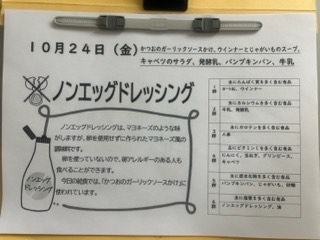 10月24日(金) かつおのガーリックソースかけ、ウインナーとじゃがいものスープ、
キャベツのサラダ、発酵乳、パンプキンパン、牛乳
ノンエッグドレッシング
ノンエッグドレッシングは、マヨネーズのような味
がしますが、卵を使用せずに作られたマヨネーズ風の
調味料です。
卵を使っていないので、卵アレルギーのある人も
食べることができます。
今日の給食では、「かつおのガーリックソースかけ」に
使われています。
ノンエッグ
ドレッシング
1群
主にたんぱく質を多く含む食品
かつお、ウインナー
2群
主にカルシウムを多く含む食品
牛乳、発酵乳
3群
主にカロテンを多く含む食品
人参
4群
主にビタミンCを多く含む食品
にんにく、玉ねぎ、グリンピース、
キャベツ
5群
主に炭水化物を多く含む食品
パンプキンパン、じゃがいも、砂糖
6群
主に脂質を多く含む食品
ノンエッグドレッシング、油